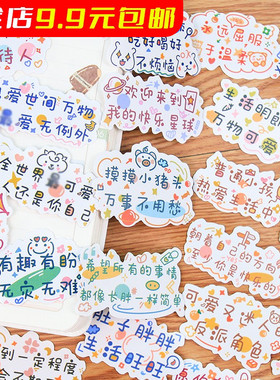 店9.9元包邮
待
吃好喝好
不烦恼
永远屈服
于温柔
爱世间万物
爱无例外
欢迎来到
我的快乐星球
生活明朗
万物可爱
全世界可爱
人还是你自己
摸摸小猪头
万事不用愁
普通人
热爱生活
有趣有盼
无灾无难
希望所有的事情
都像长胖一样简单
朝着自己的方向
你是快乐的
肚子胖胖
生活旺旺
可爱又迷人
反派角色
到一定程度